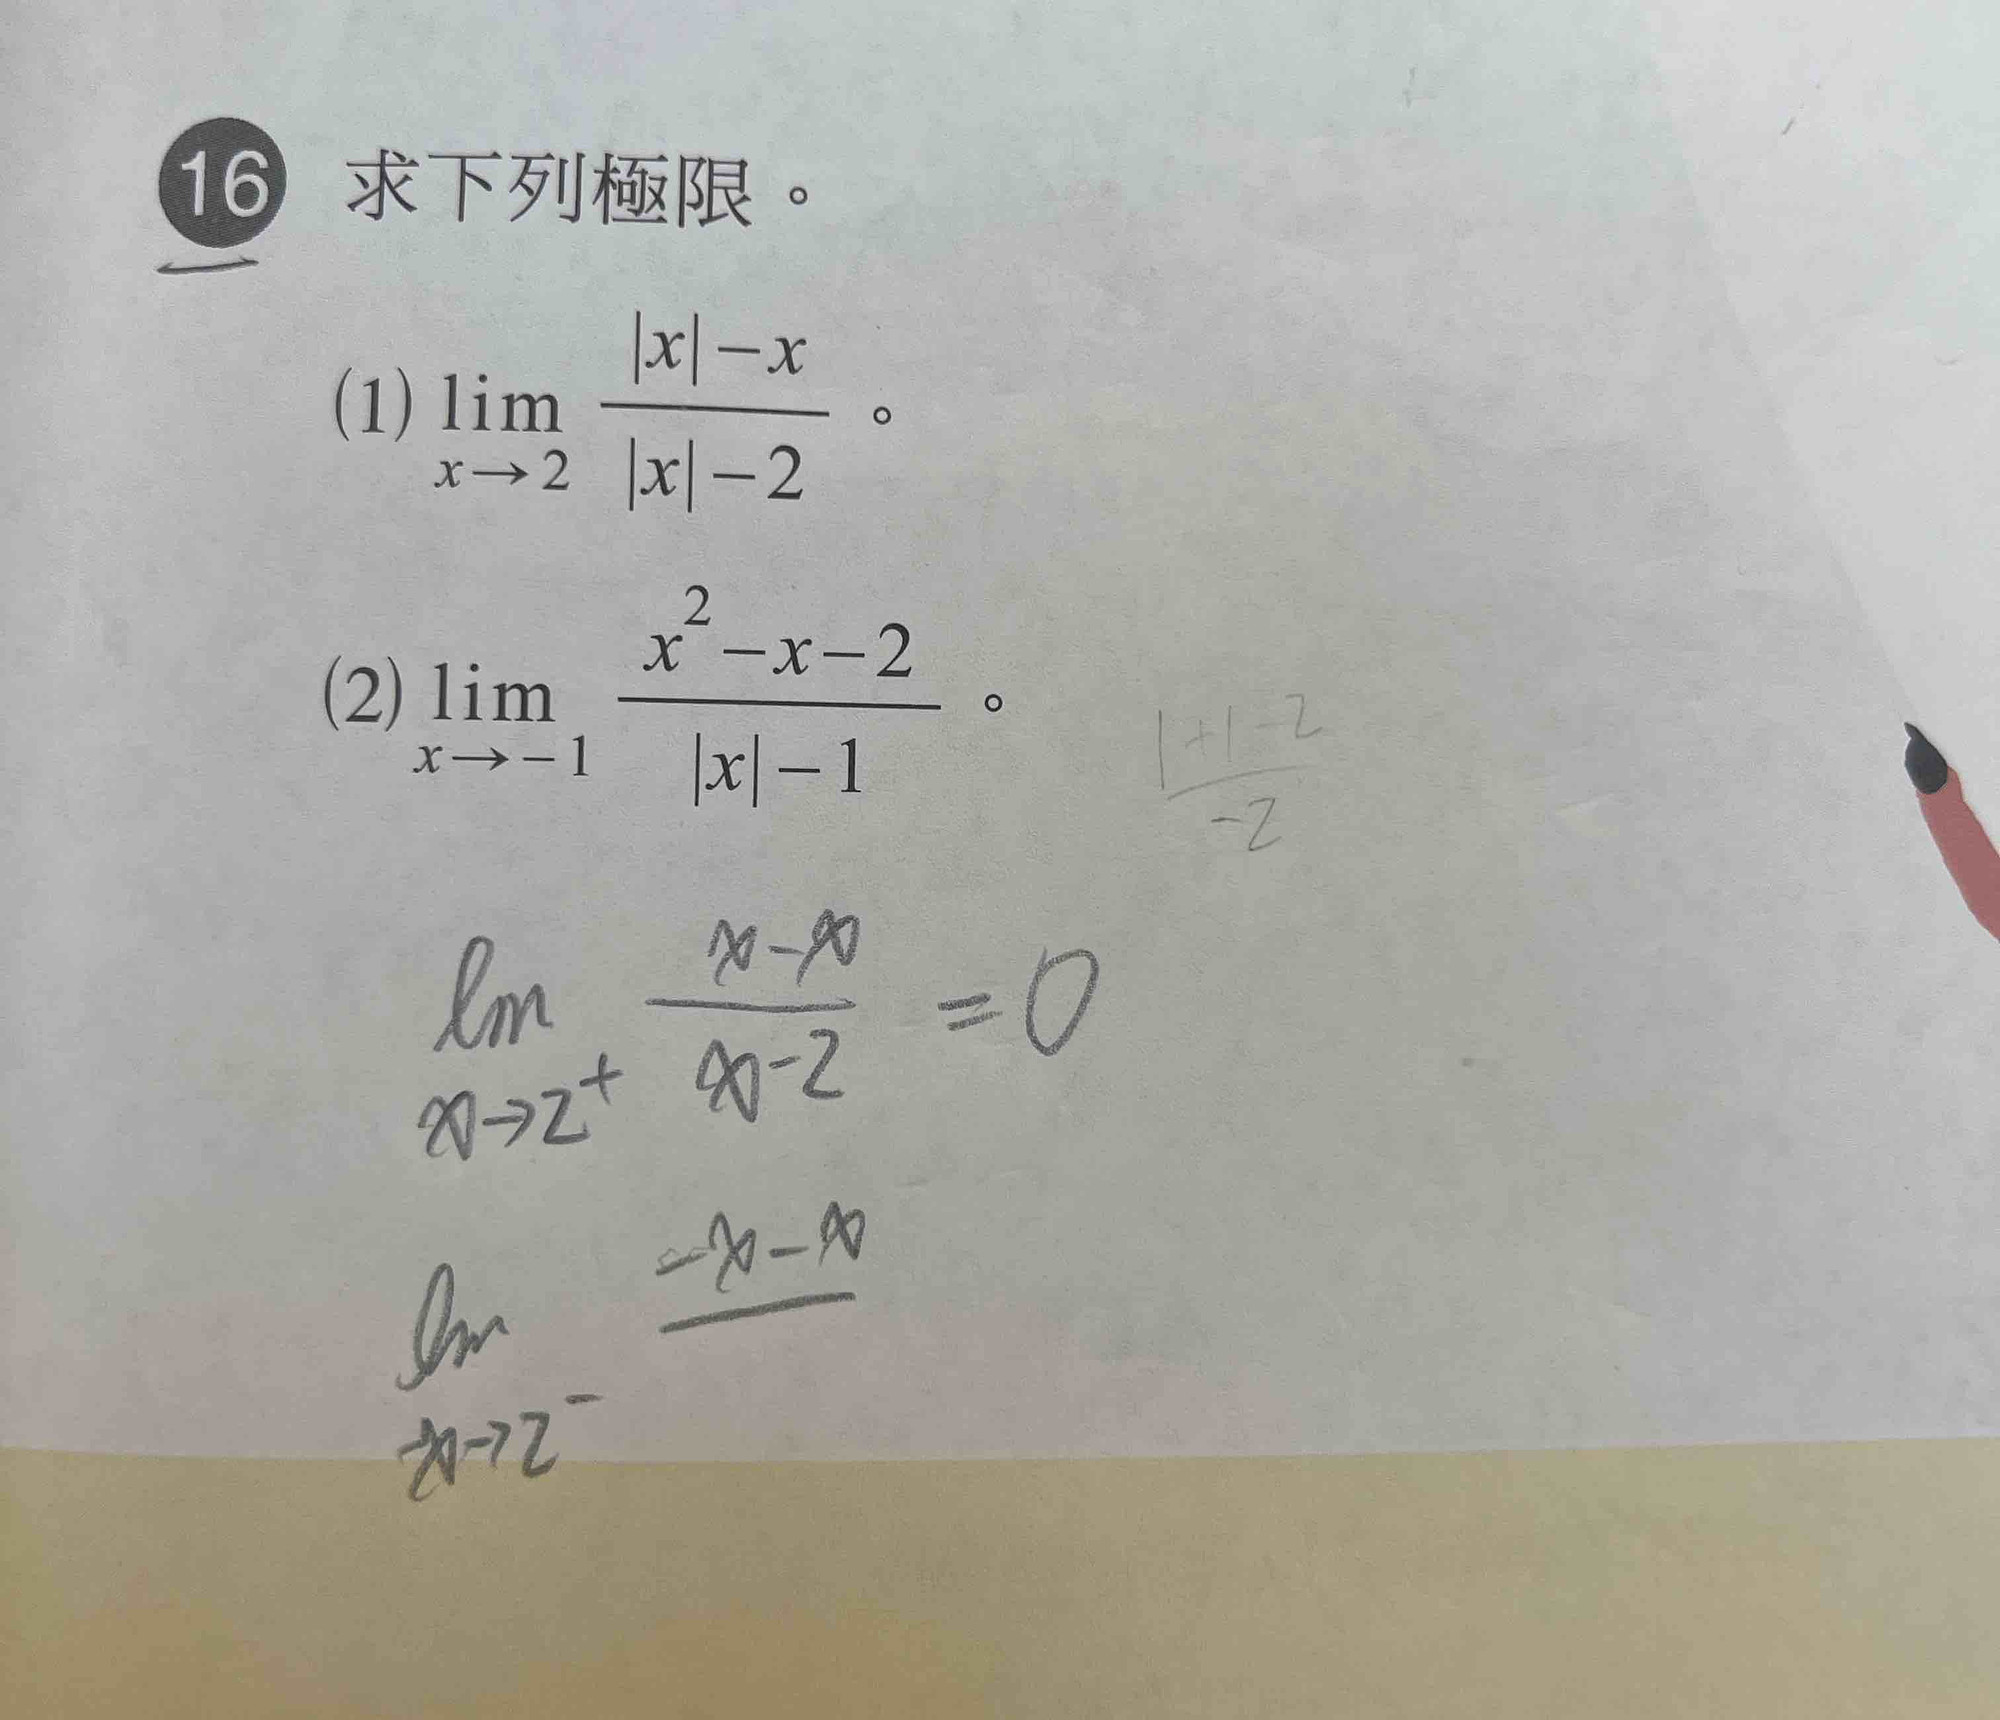 16 求下列極限。
(1) lim_{x→2} (|x|−x)/(|x|−2)。
(2) lim_{x→−1} (x²−x−2)/(|x|−1)。
(1+1−2)/(−2)
lim_{x→2⁺} (x−x)/(x−2) = 0
lim_{x→2⁻} −x−x